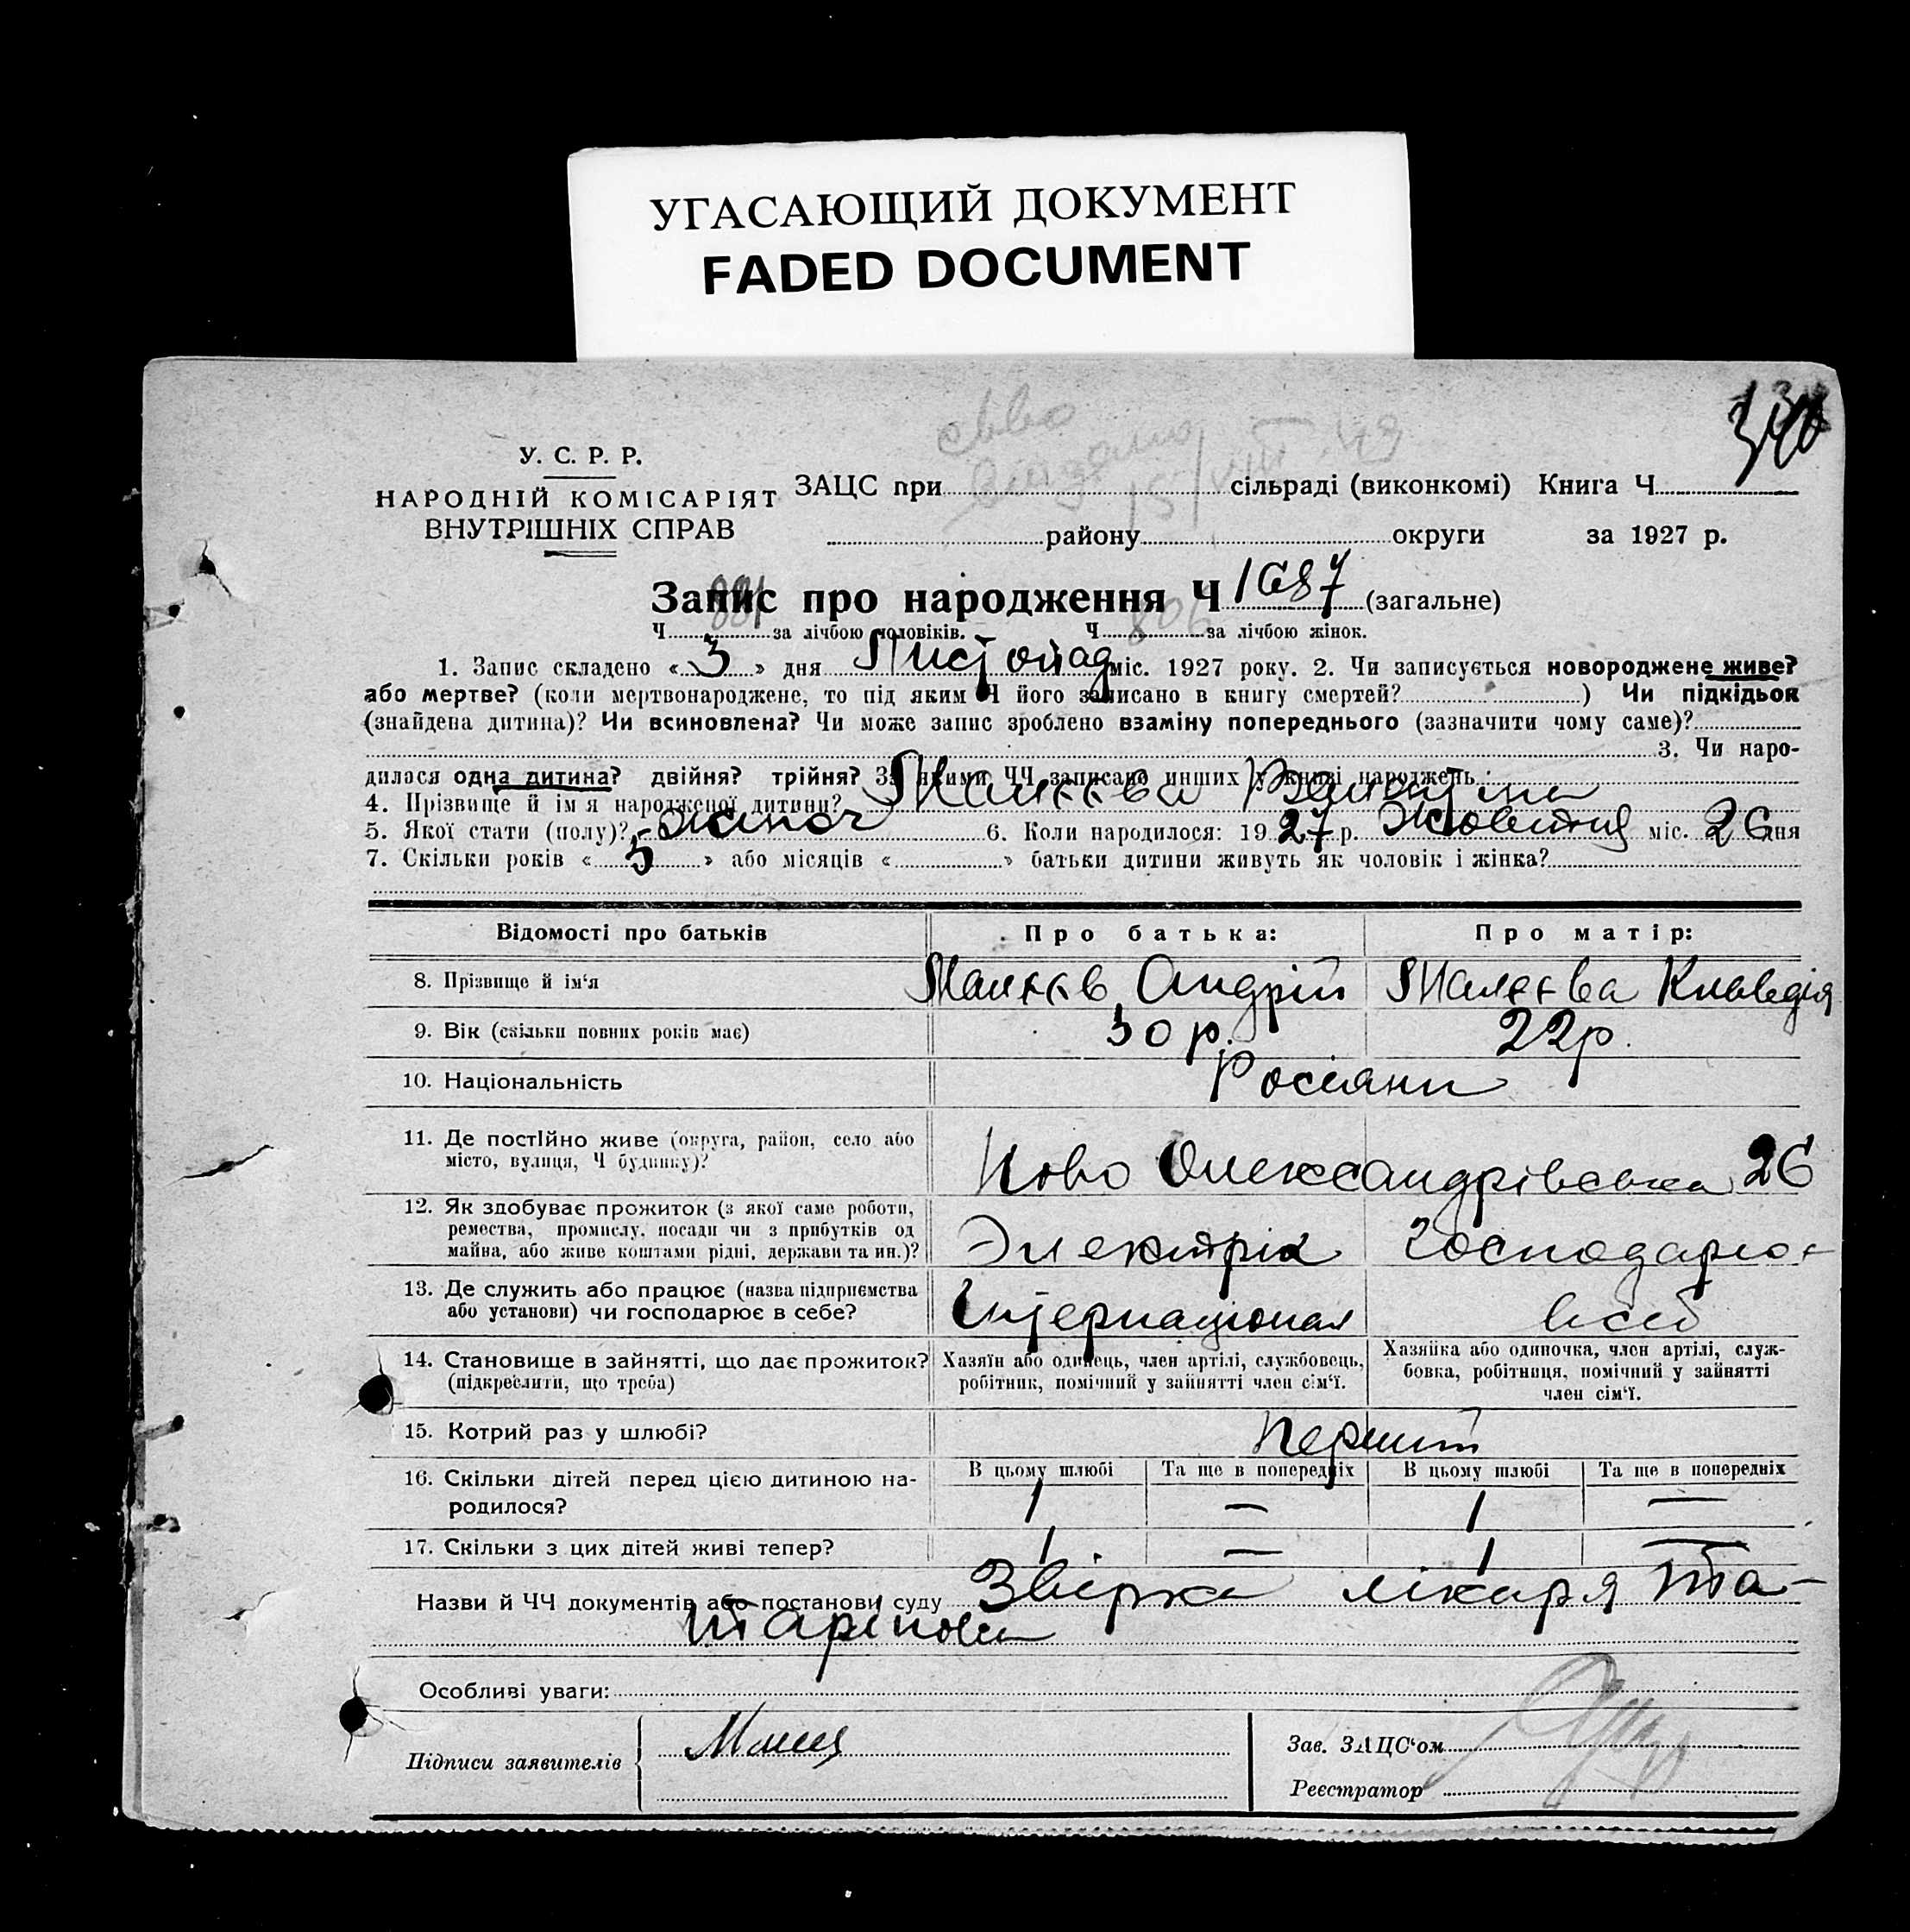 УГАСАЮЩИЙ ДОКУМЕНТ
FADED DOCUMENT
340
У. С. Р. Р.
НАРОДНІЙ КОМІСАРІЯТ
ВНУТРІШНІХ СПРАВ
ЗАЦС при сільраді (виконкомі) Книга Ч.
району округи за 1927 р.
Запис про народження Ч 1687 (загальне)
Ч 881 за лічбою чоловіків. Ч 806 за лічбою жінок.
1. Запис складено « 3 » дня Листопад міс. 1927 року. 2. Чи записується новороджене живе?
або мертве? (коли мертвонароджене, то під яким Ч його записано в книгу смертей? ) Чи підкідьок
(знайдена дитина)? Чи всиновлена? Чи може запис зроблено взаміну попереднього (зазначити чому саме)?
3. Чи наро-
дилася одна дитина? двійня? трійня? За якими ЧЧ записано инших у книзі народжень
4. Прізвище й ім'я народженої дитини? Валентина
5. Якої стати (полу)? жіноч 6. Коли народилося: 1927 р. Жовтня міс. 26 дня
7. Скільки років « 5 » або місяців « » батьки дитини живуть як чоловік і жінка?
Відомості про батьків Про батька: Про матір:
8. Прізвище й ім'я Андрій Клаведія
9. Вік (скільки повних років має) 30 р. 22 р.
10. Національність Росіяни
11. Де постІйно живе (округа, район, село або
місто, вулиця, Ч будинку)? Ново Олександрівська 26
12. Як здобуває прожиток (з якої саме роботи,
ремества, промислу, посади чи з прибутків од
майна, або живе коштами рідні, держави та ин.)? Электрік Господарює
13. Де служить або працює (назва підприємства
або установи) чи господарює в себе? Інтернаціонал всеб
14. Становище в зайнятті, що дає прожиток? Хазяїн або одинець, член артілі, службовець, Хазяйка або одиночка, член артілі, служ-
(підкреслити, що треба) робітник, помічний у зайнятті член сім'ї. бовка, робітниця, помічний у зайнятті
член сім'ї.
15. Котрий раз у шлюбі? перший
16. Скільки дітей перед цією дитиною на- В цьому шлюбі Та ще в попередніх В цьому шлюбі Та ще в попередніх
родилося? 1 — 1 —
17. Скільки з цих дітей живі тепер? 1 — 1 —
Назви й ЧЧ документів або постанови суду Звірка лікаря Та-
тарінова
Особливі уваги:
Підписи заявителів
Зав. ЗАЦС'ом
Реєстратор